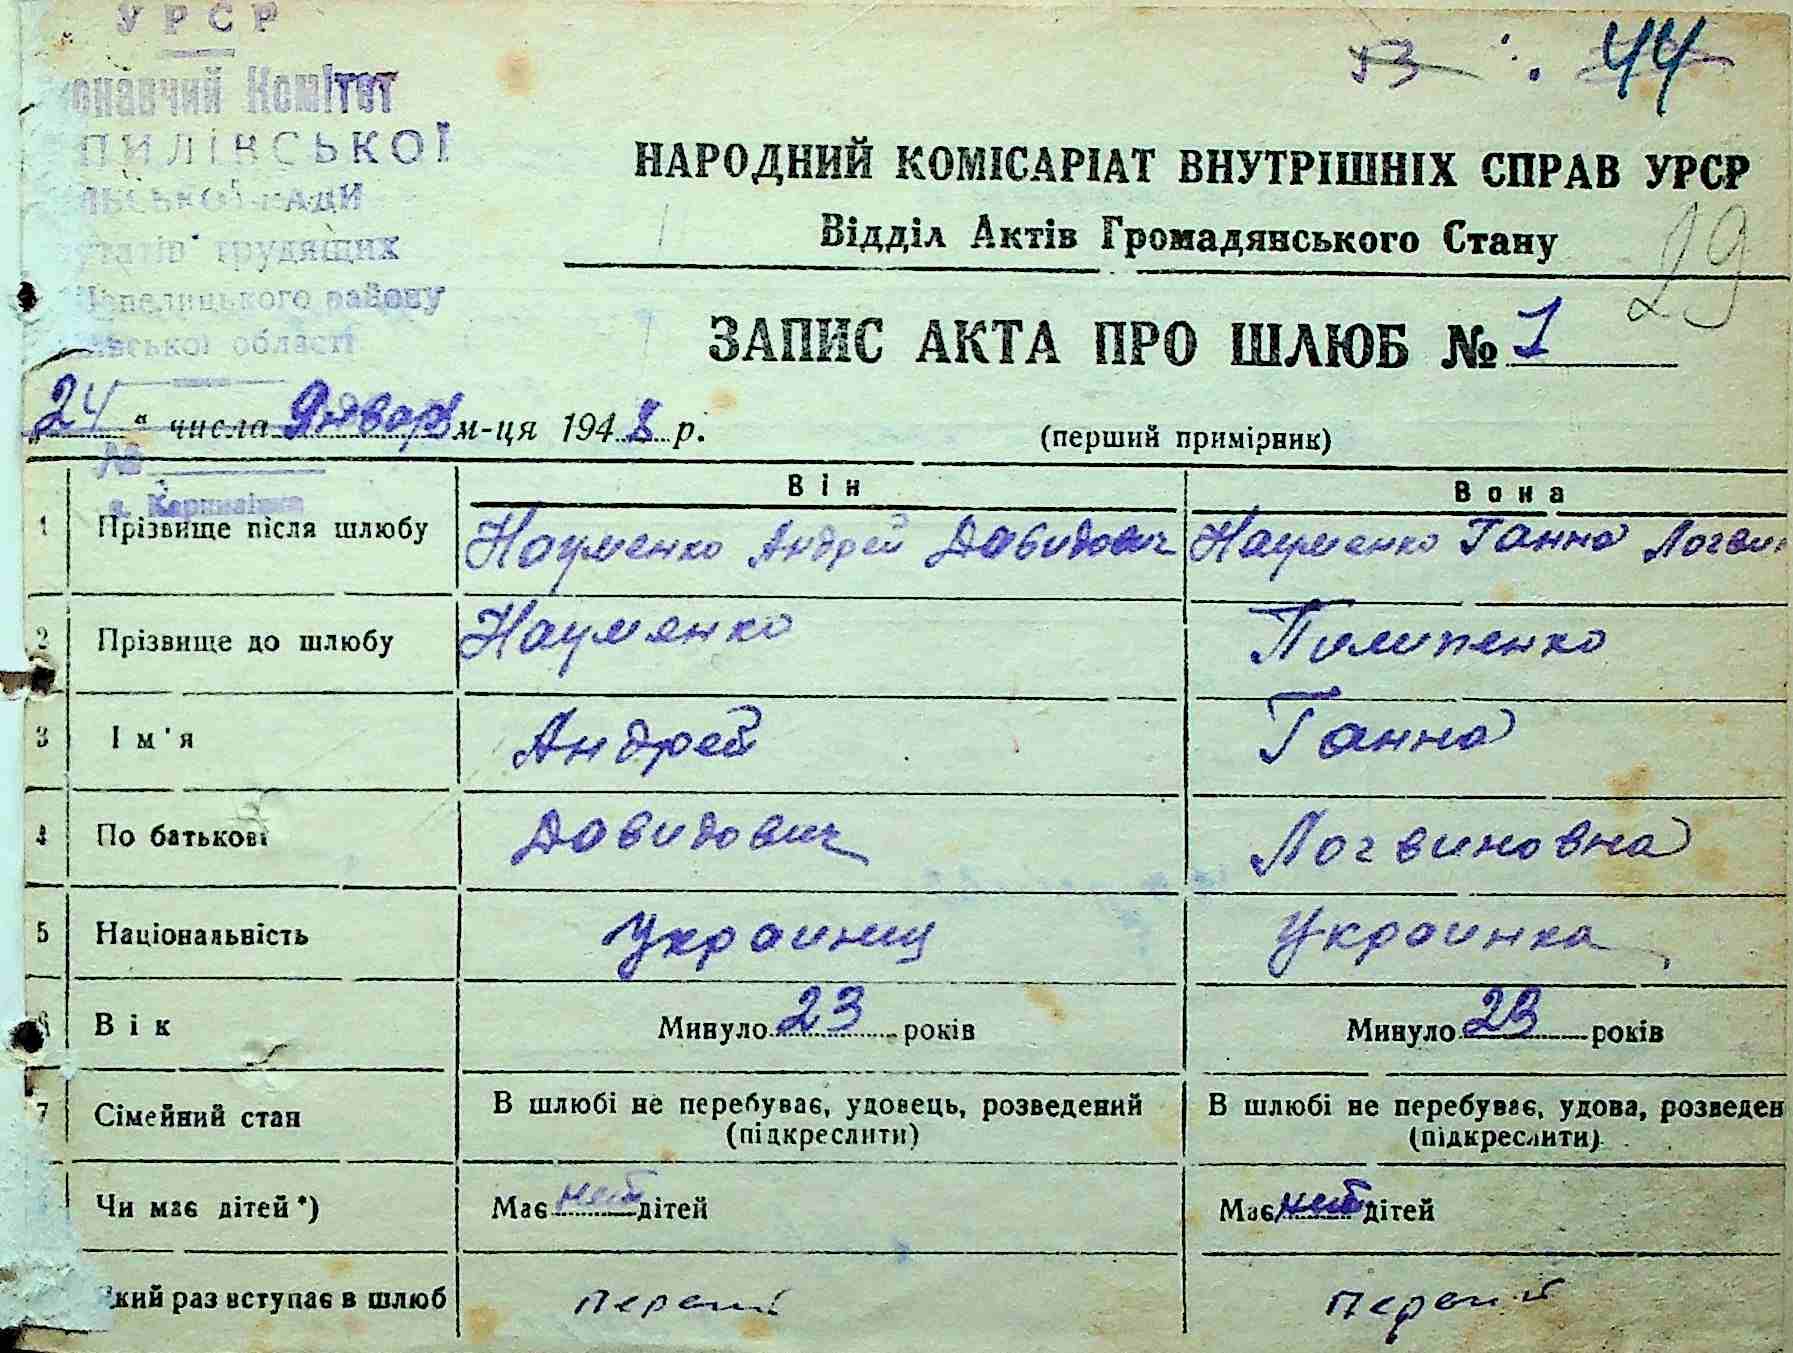 УРСР
онавчий Комітет
ПИЛІВСЬКОЇ
РАДИ
трудящих
району
області
№
53 44
НАРОДНИЙ КОМІСАРІАТ ВНУТРІШНІХ СПРАВ УРСР
Відділ Актів Громадянського Стану
29
ЗАПИС АКТА ПРО ШЛЮБ № 1
„24“ числа Январь м-ця 1948 р.
(перший примірник)
Він Вона
1 Прізвище після шлюбу Науменко Андрей Давидович Науменко Ганна Логвин
2 Прізвище до шлюбу Науменко Пилипенко
3 Ім'я Андрей Ганна
4 По батькові Давидович Логвиновна
5 Національність Украинец Украинка
6 Вік Минуло 23 років Минуло 23 років
7 Сімейний стан В шлюбі не перебуває, удовець, розведений В шлюбі не перебуває, удова, розведен
(підкреслити) (підкреслити)
Чи має дітей*) Має нет дітей Має нет дітей
Який раз вступає в шлюб первий первий